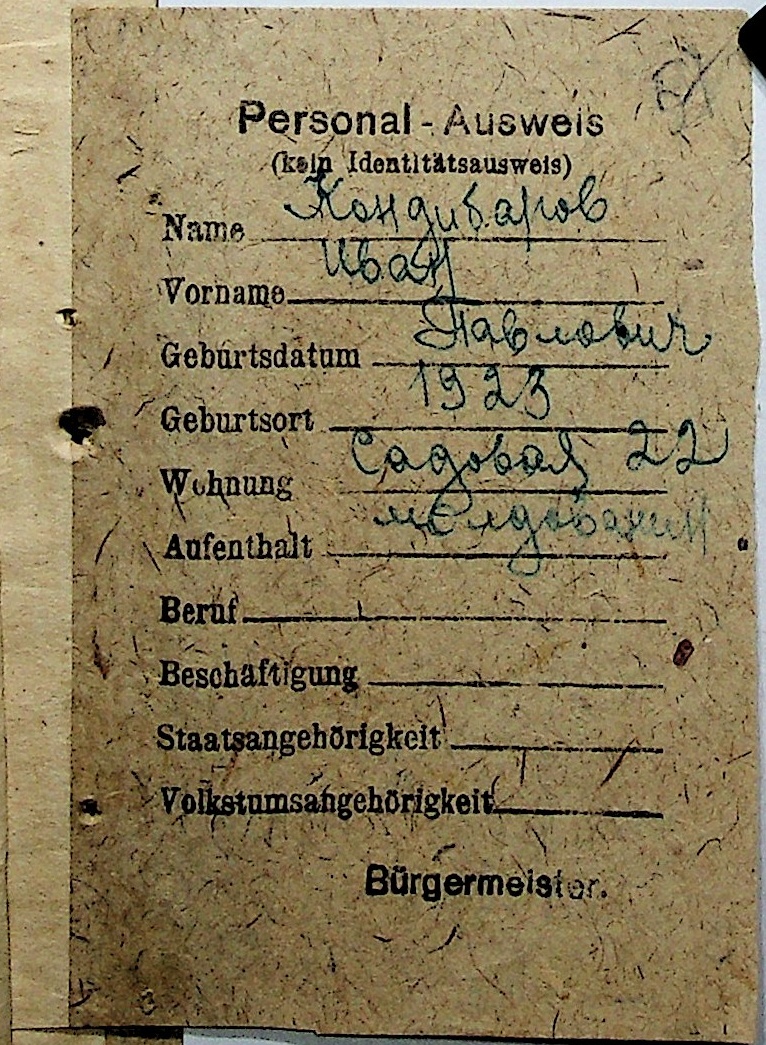 Personal - Ausweis
(kein Identitätsausweis)
Name Кондибаров
Vorname Иван
Павлович
Geburtsdatum
1923
Geburtsort
Садовая 22
Wohnung
молдованин
Aufenthalt
Beruf
Beschäftigung
Staatsangehörigkeit
Volkstumsangehörigkeit
Bürgermeister.